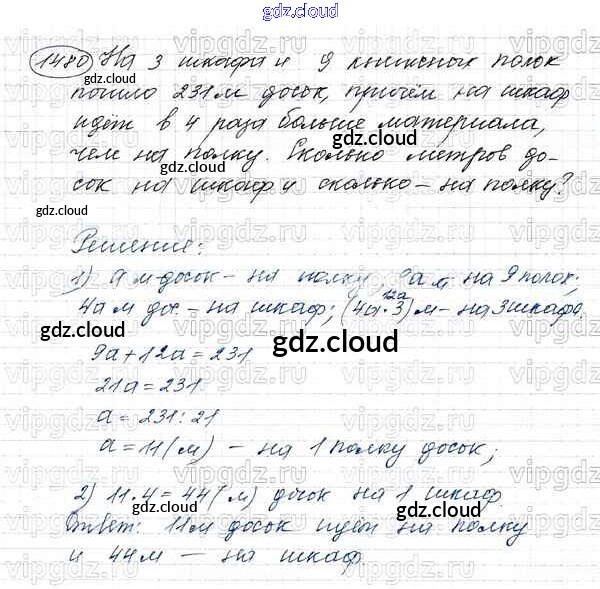 gdz.cloud
1480 На 3 шкафа и 9 книжных полок
gdz.cloud
пошло 231 м досок, причём на шкаф
идёт в 4 раза больше материала,
gdz.cloud
чем на полку. Сколько метров до-
сок на шкаф и сколько - на полку?
gdz.cloud
gdz.cloud
Решение:
1) а м досок - на полку 9а м на 9 полок;
12а
4а м дос. - на шкаф; (4а·3) м - на 3 шкафа.
gdz.cloud
gdz.cloud
9а+12а=231
21а=231
а=231:21
а=11(м) - на 1 полку досок;
2) 11·4=44(м) досок на 1 шкаф.
gdz.cloud
Ответ: 11м досок идёт на полку
и 44м - на шкаф.
gdz.cloud
vipgdz.ru